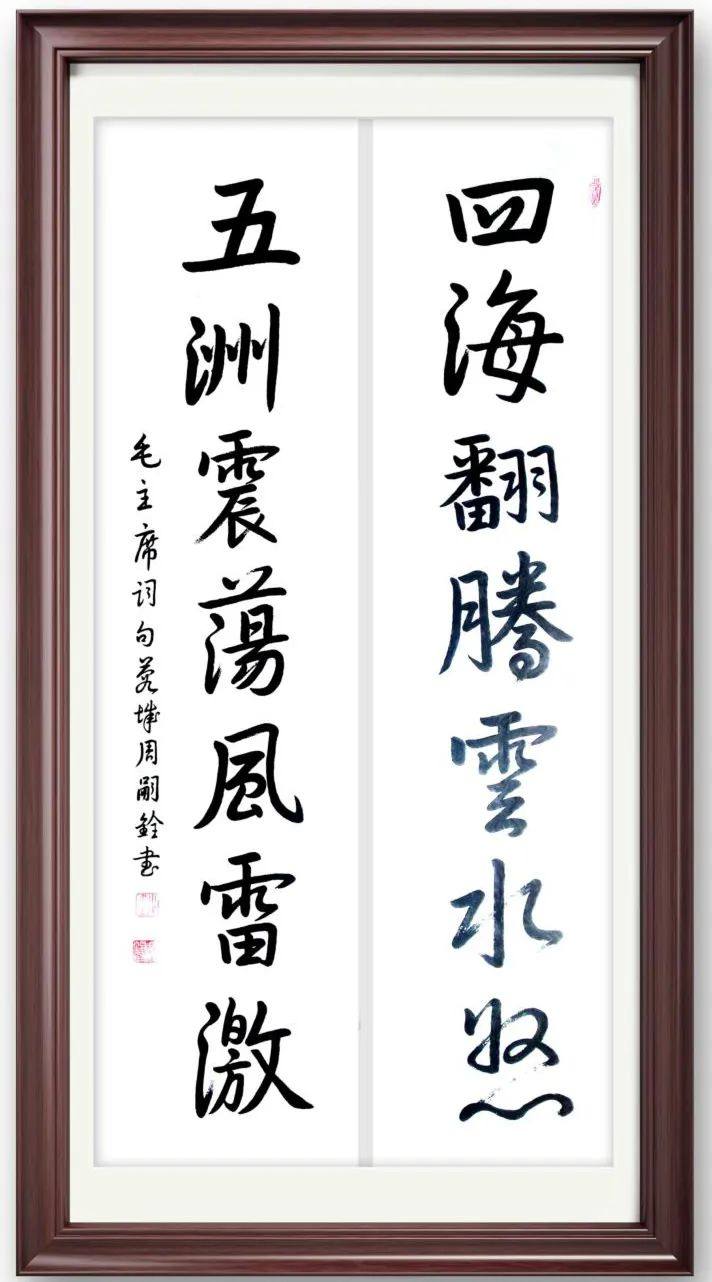 四海翻騰雲水怒
五洲震蕩風雷激
毛主席词句蓉城周嗣銓书